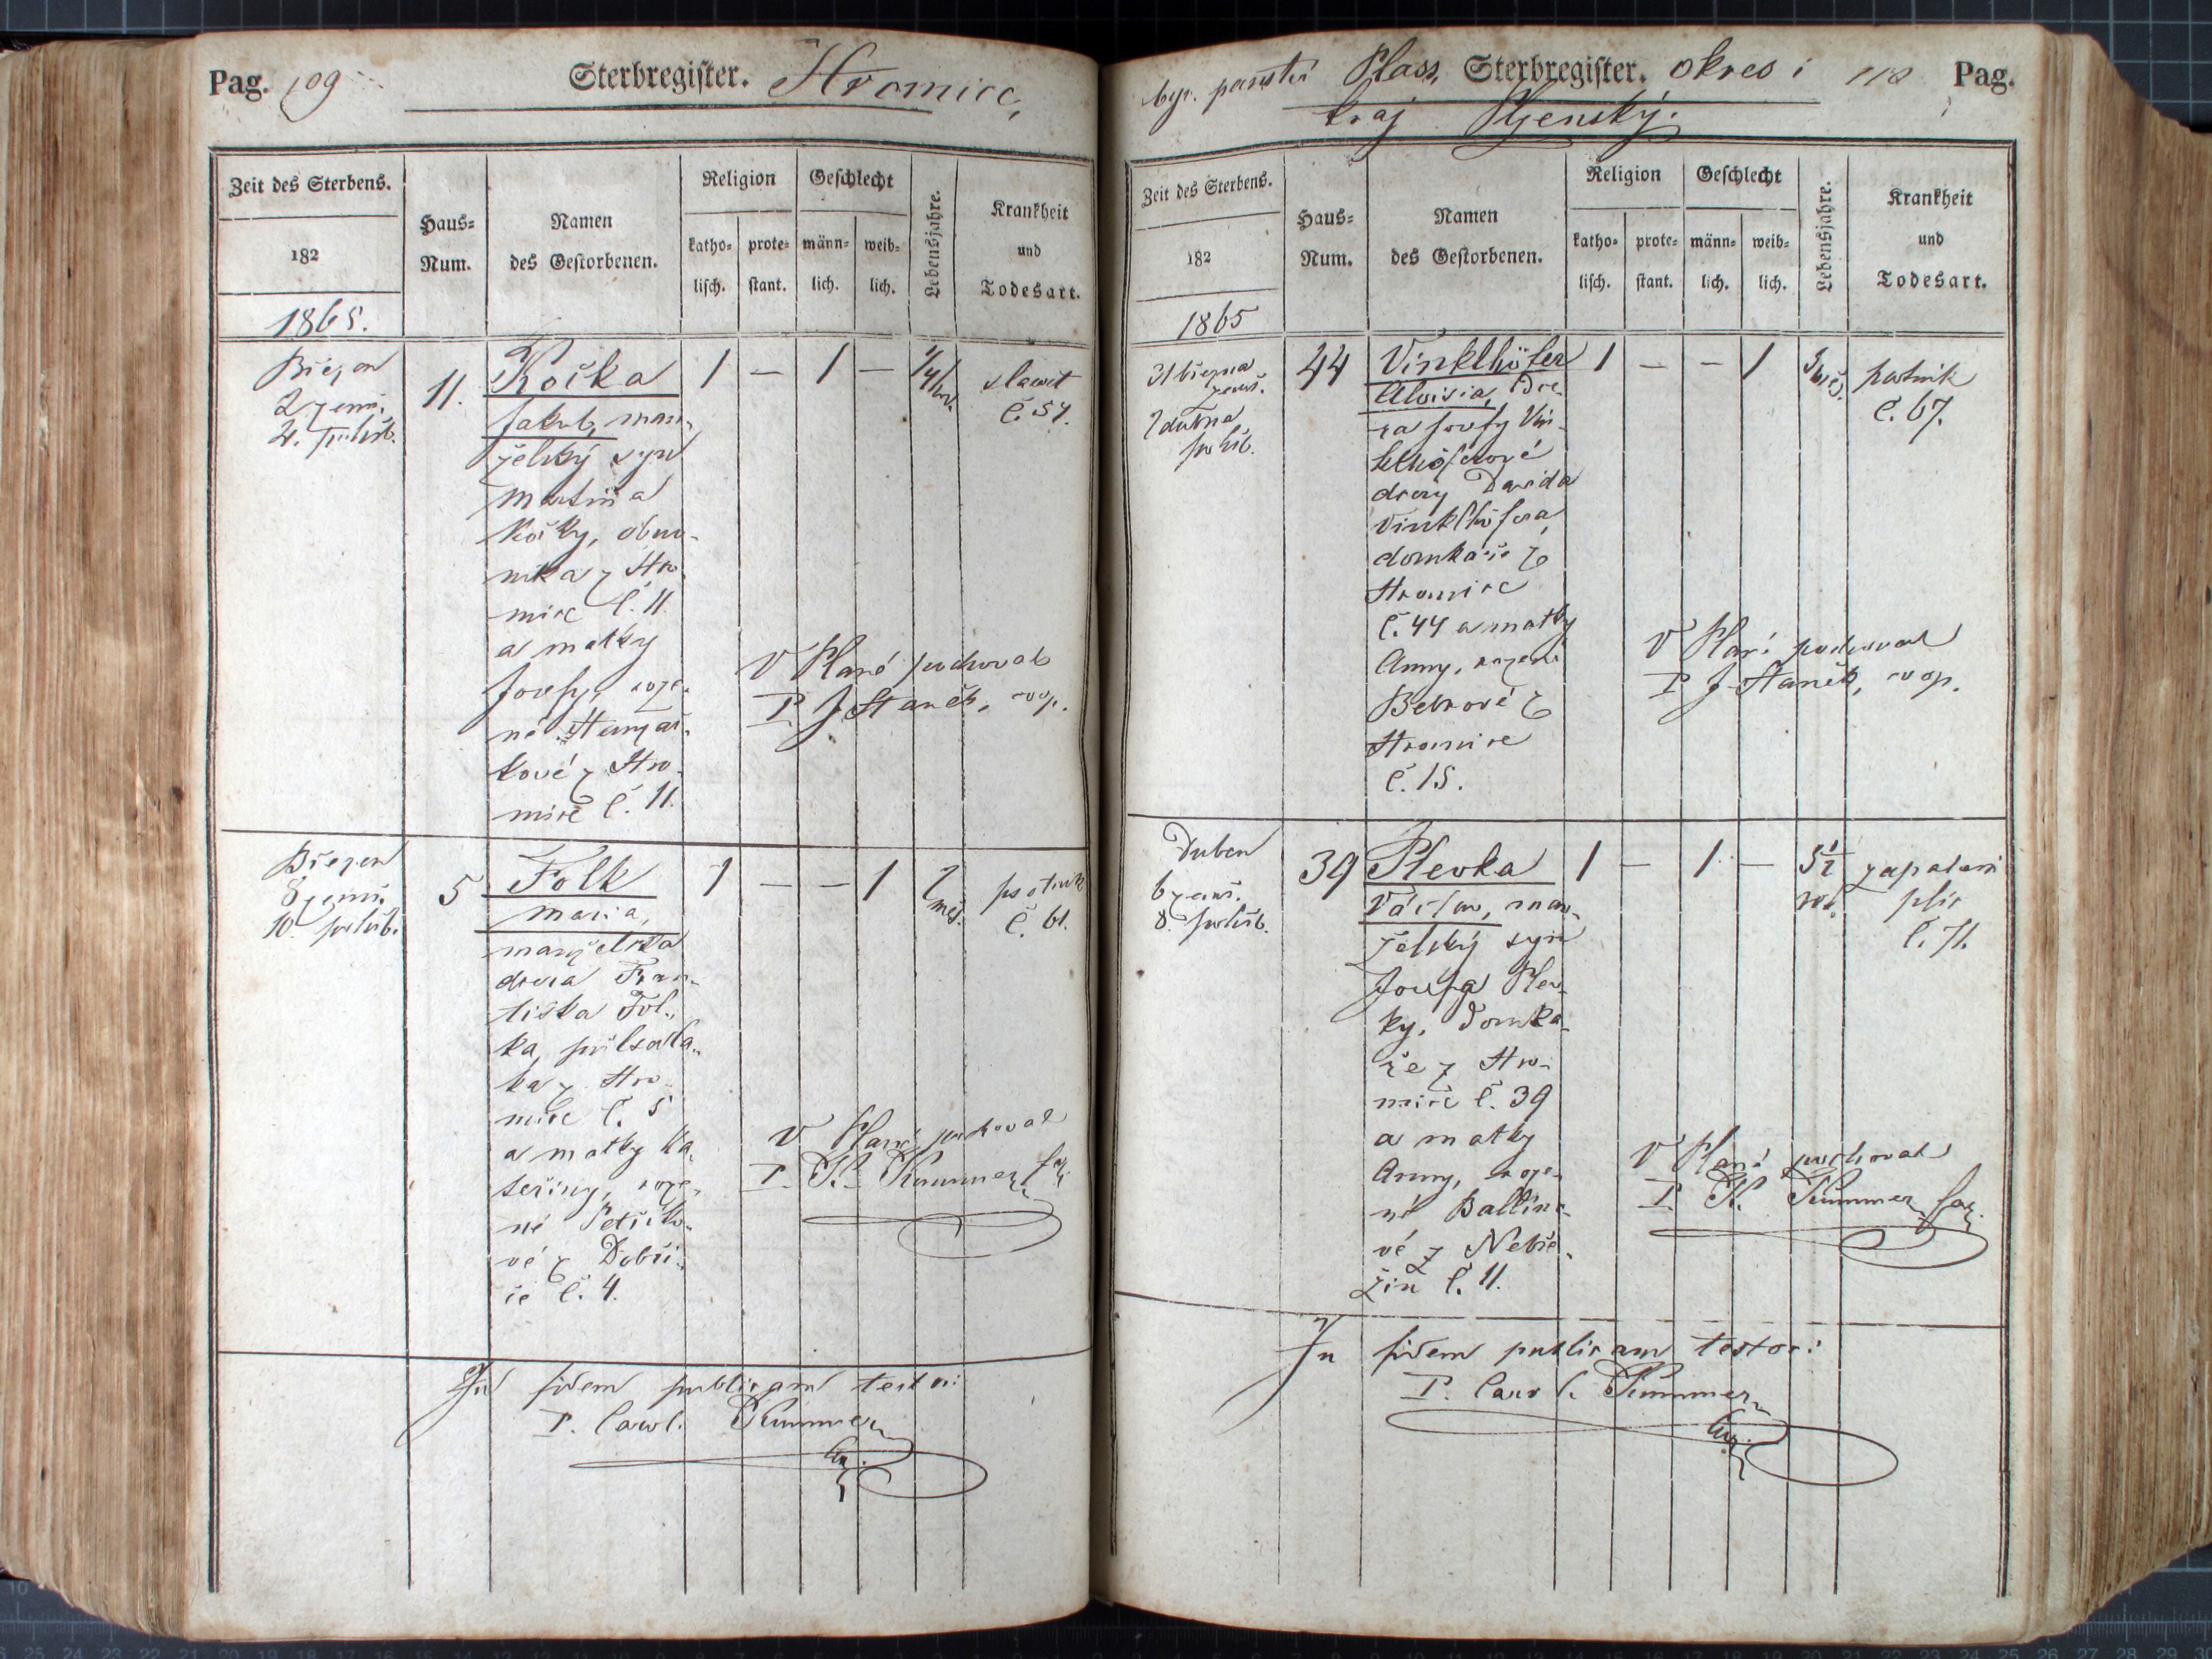 Pag. 109
Sterbregister. Hromice,
Zeit des Sterbens.
182
1865.
Haus=
Num.
Namen
des Gestorbenen.
Religion
katho=
lisch.
prote=
stant.
Geschlecht
männ=
lich.
weib=
lich.
Lebensjahre.
Krankheit
und
Todesart.
Březen
2 zemř.
4. pohřb.
11.
Kočka
Jakub, man-
želský syn
Martina
Kočky, obuv-
níka z Hro-
mic č. 11.
a matky
Josefy, roze-
né
kové z Hro-
mic č. 11.
1 — 1 —
č. 57.
V Plané pochoval
P. J. Staněk, coop.
Březen
8 zemř.
10. pohřb.
5
Folk
Maria,
manželská
dcera Fran-
tiška Fol-
ka, půlsedlá-
ka z Hro-
mic č. 5
a matky Ka-
teřiny, roze-
né
vé z Dobří-
če č. 4.
1 — — 1
měs.
psotník
č. 61.
V Plané pochoval
P. K. Kummer far.
In fidem publicam testor:
P. Carol. Kummer
byv. panství Plass, Sterbregister. okres i 110 Pag.
kraj Plzenský.
Zeit des Sterbens.
182
1865
Haus=
Num.
Namen
des Gestorbenen.
Religion
katho=
lisch.
prote=
stant.
Geschlecht
männ=
lich.
weib=
lich.
Lebensjahre.
Krankheit
und
Todesart.
31 března
zemř.
2 dubna
pohřb.
44
Vinklhöfer
Aloisia, dce-
ra Josefy Vin-
klhöferové
dcery Davida
Vinklhöfera,
domkáře z
Hromic
č. 44 a matky
Anny, rozené
z
Hromic
č. 15.
1 — — 1
psotník
č. 67.
V Plané pochoval
P. J. Staněk, coop.
Duben
6 zemř.
8. pohřb.
39
Plevka
Václav, man-
želský syn
Josefa Plev-
ky, domká-
ře z Hro-
mic č. 39
a matky
Anny, roze-
né Ballino-
vé z Nebře-
zin č. 11.
1 — 1 —
5 1/2
rok.
zapálení
plic
č. 71.
V Plané pochoval
P. K. Kummer far.
In fidem publicam testor:
P. Carol. Kummer